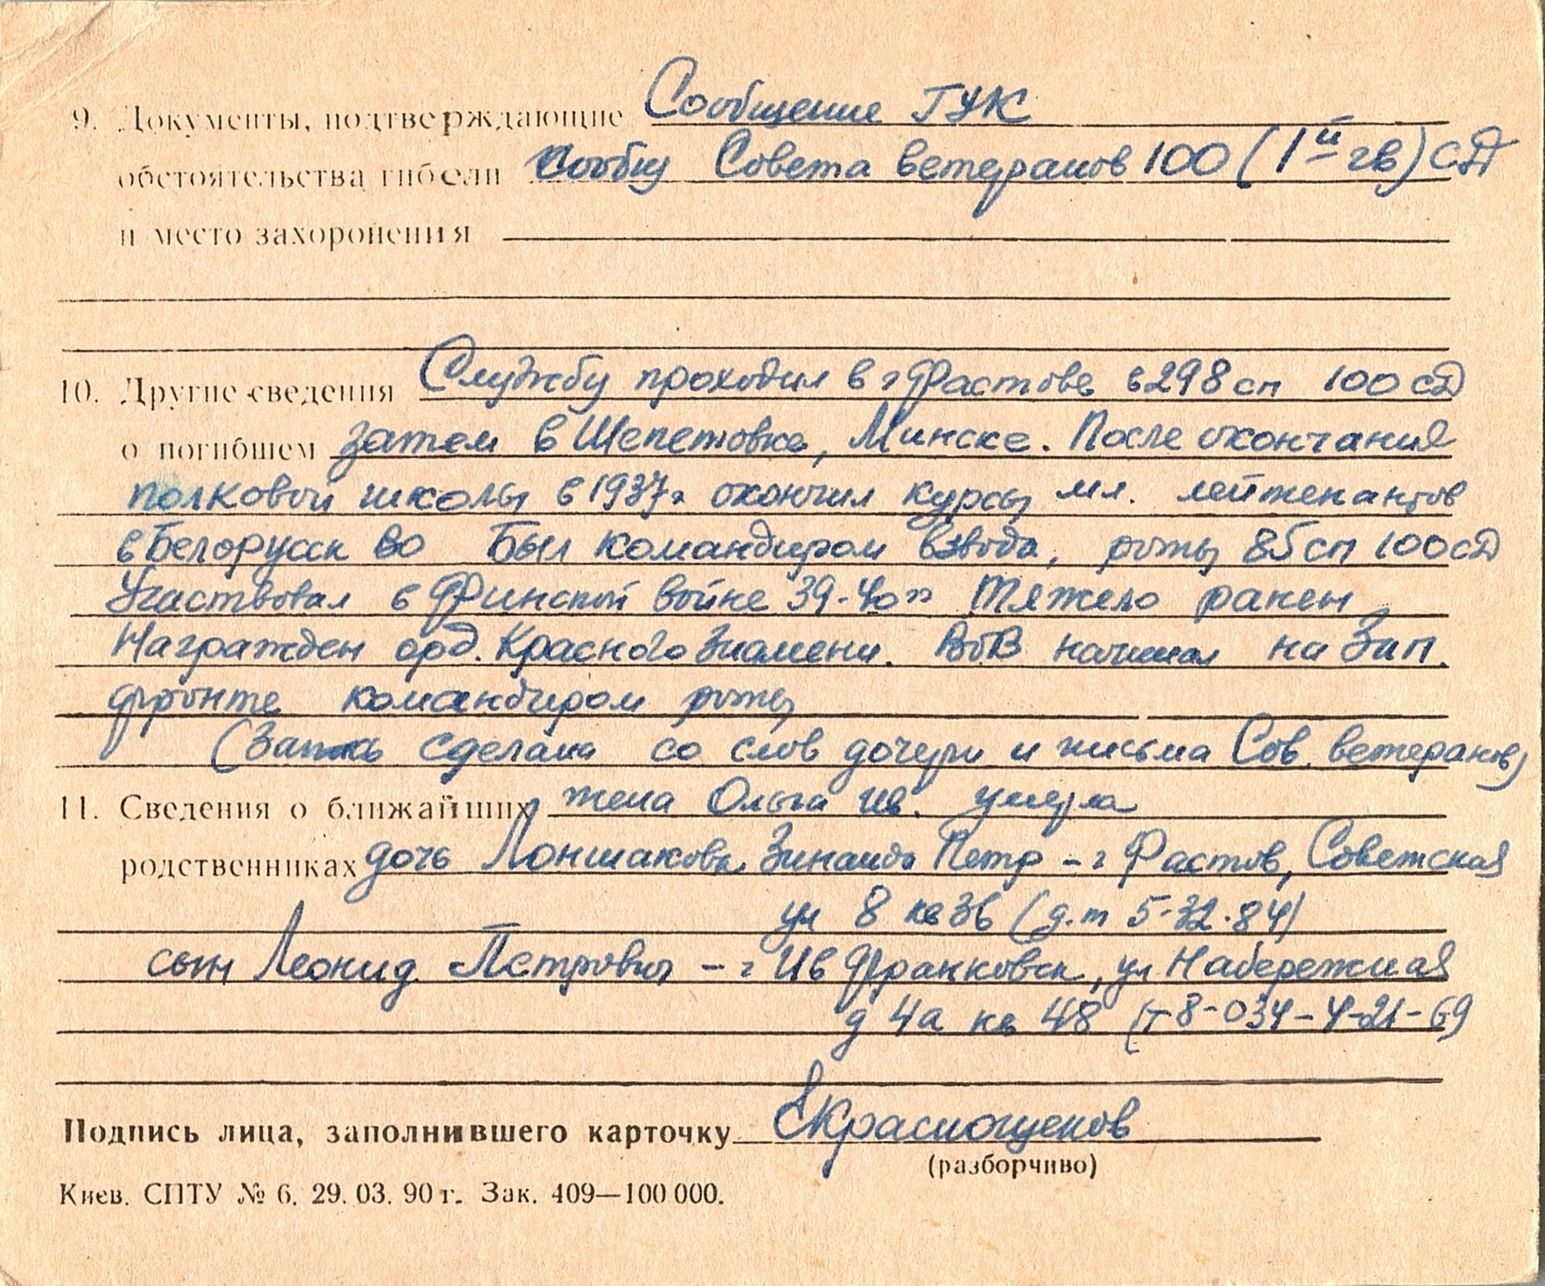 9. Документы, подтверждающие Сообщение ГУК
обстоятельства гибели Сообщ Совета ветеранов 100 (1й гв) СД
и место захоронения
10. Другие сведения Службу проходил в г Фастове в 298 сп 100 сД
о погибшем затем в Шепетовке, Минске. После окончания
полковой школы в 1937г окончил курсы мл. лейтенантов
в Белорусск ВО Был командиром взвода, роты 85 сп 100 сД
Участвовал в Финской войне 39-40гг Тяжело ранен
Награжден орд. Красного Знамени. ВОВ начинал на Зап.
фронте командиром роты
(Запись сделана со слов дочери и письма Сов. ветеранов)
11. Сведения о ближайших жена Ольга Ив. умерла
родственниках дочь Лоншакова Зинаида Петр – г Фастов, Советская
ул 8 кв 36 (д.т 5-32-84)
сын Леонид Петрович – г Ив Франковск, ул Набережная
д 4а кв 48 (т 8-034-4-21-69
Подпись лица, заполнившего карточку ЕКраснощеков
(разборчиво)
Киев. СПТУ № 6. 29. 03. 90 г. Зак. 409—100 000.